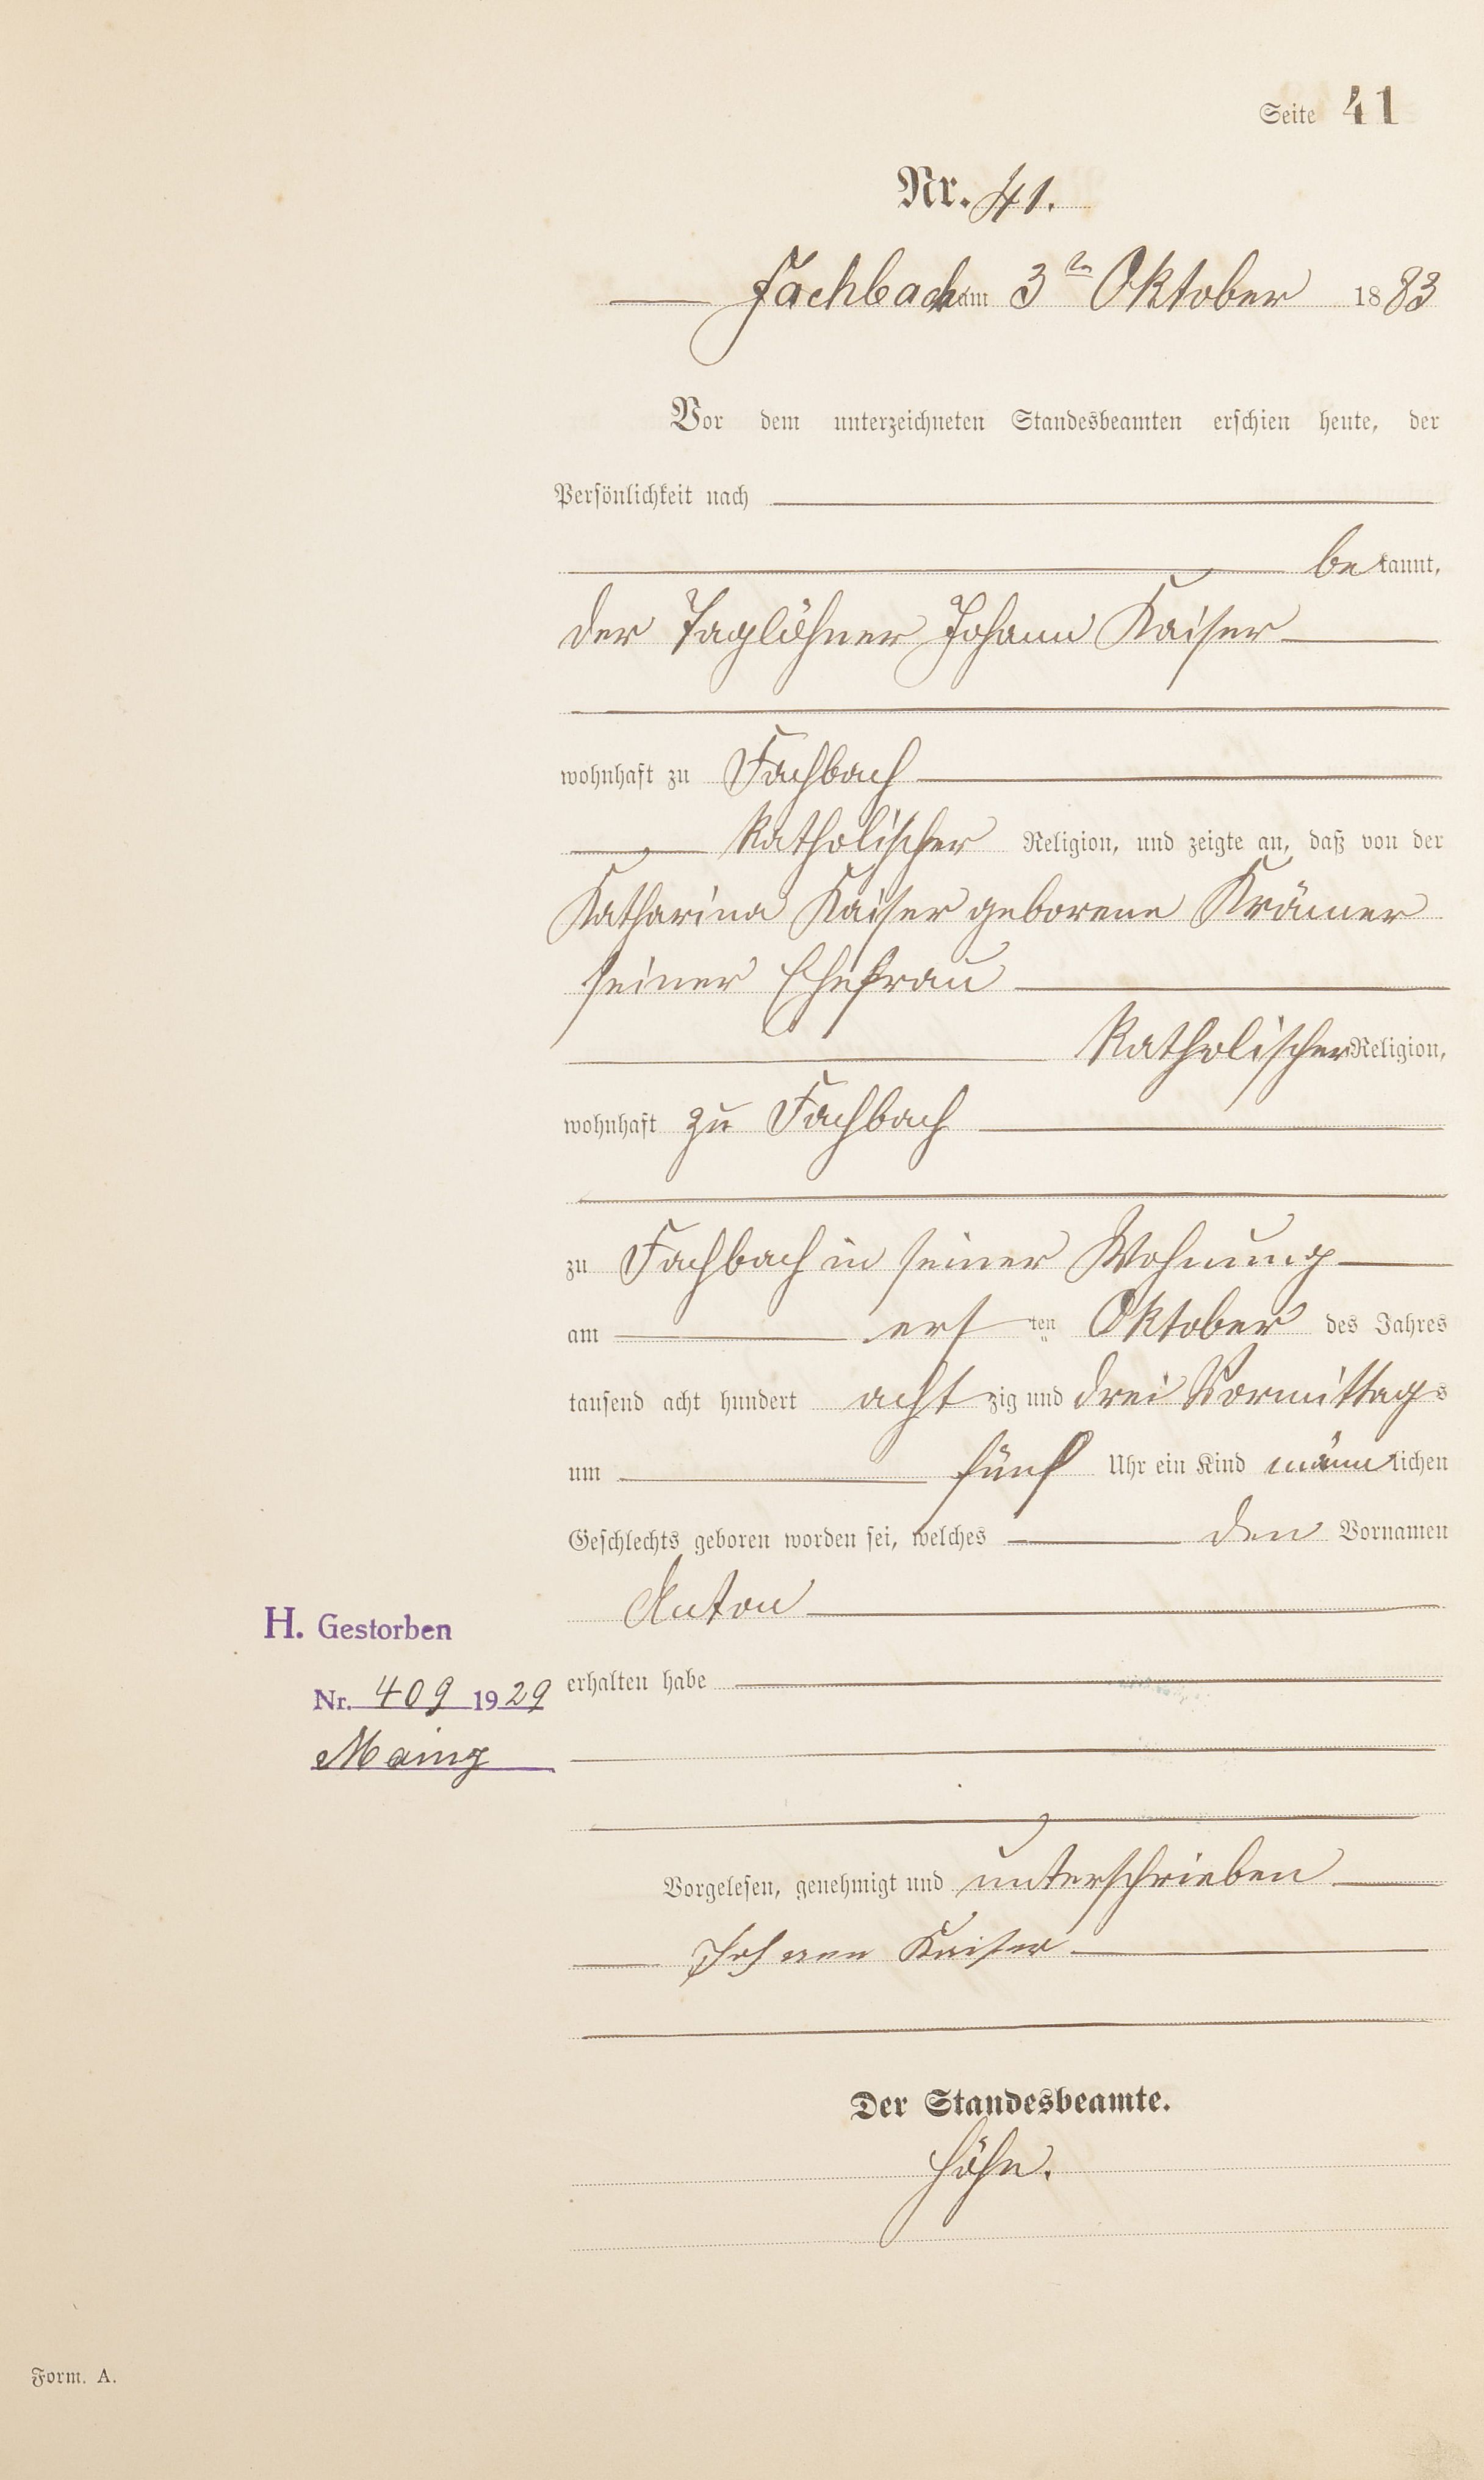 Seite 41
Nr. 41.
Fachbach am 3ten Oktober 1883
Vor dem unterzeichneten Standesbeamten erschien heute, der
Persönlichkeit nach
bekannt,
der Taglöhner Johann Kaiser
wohnhaft zu Fachbach
katholischer Religion, und zeigte an, daß von der
Katharina Kaiser geborene Krämer
seiner Ehefrau
katholischer Religion,
wohnhaft zu Fachbach
zu Fachbach in seiner Wohnung
am ersten Oktober des Jahres
tausend acht hundert achtzig und drei Vormittags
um fünf Uhr ein Kind männlichen
Geschlechts geboren worden sei, welches den Vornamen
Anton
erhalten habe
H. Gestorben
Nr. 409 1929
Mainz
Vorgelesen, genehmigt und unterschrieben
Johann Kaiser
Der Standesbeamte.
Höhn.
Form. A.